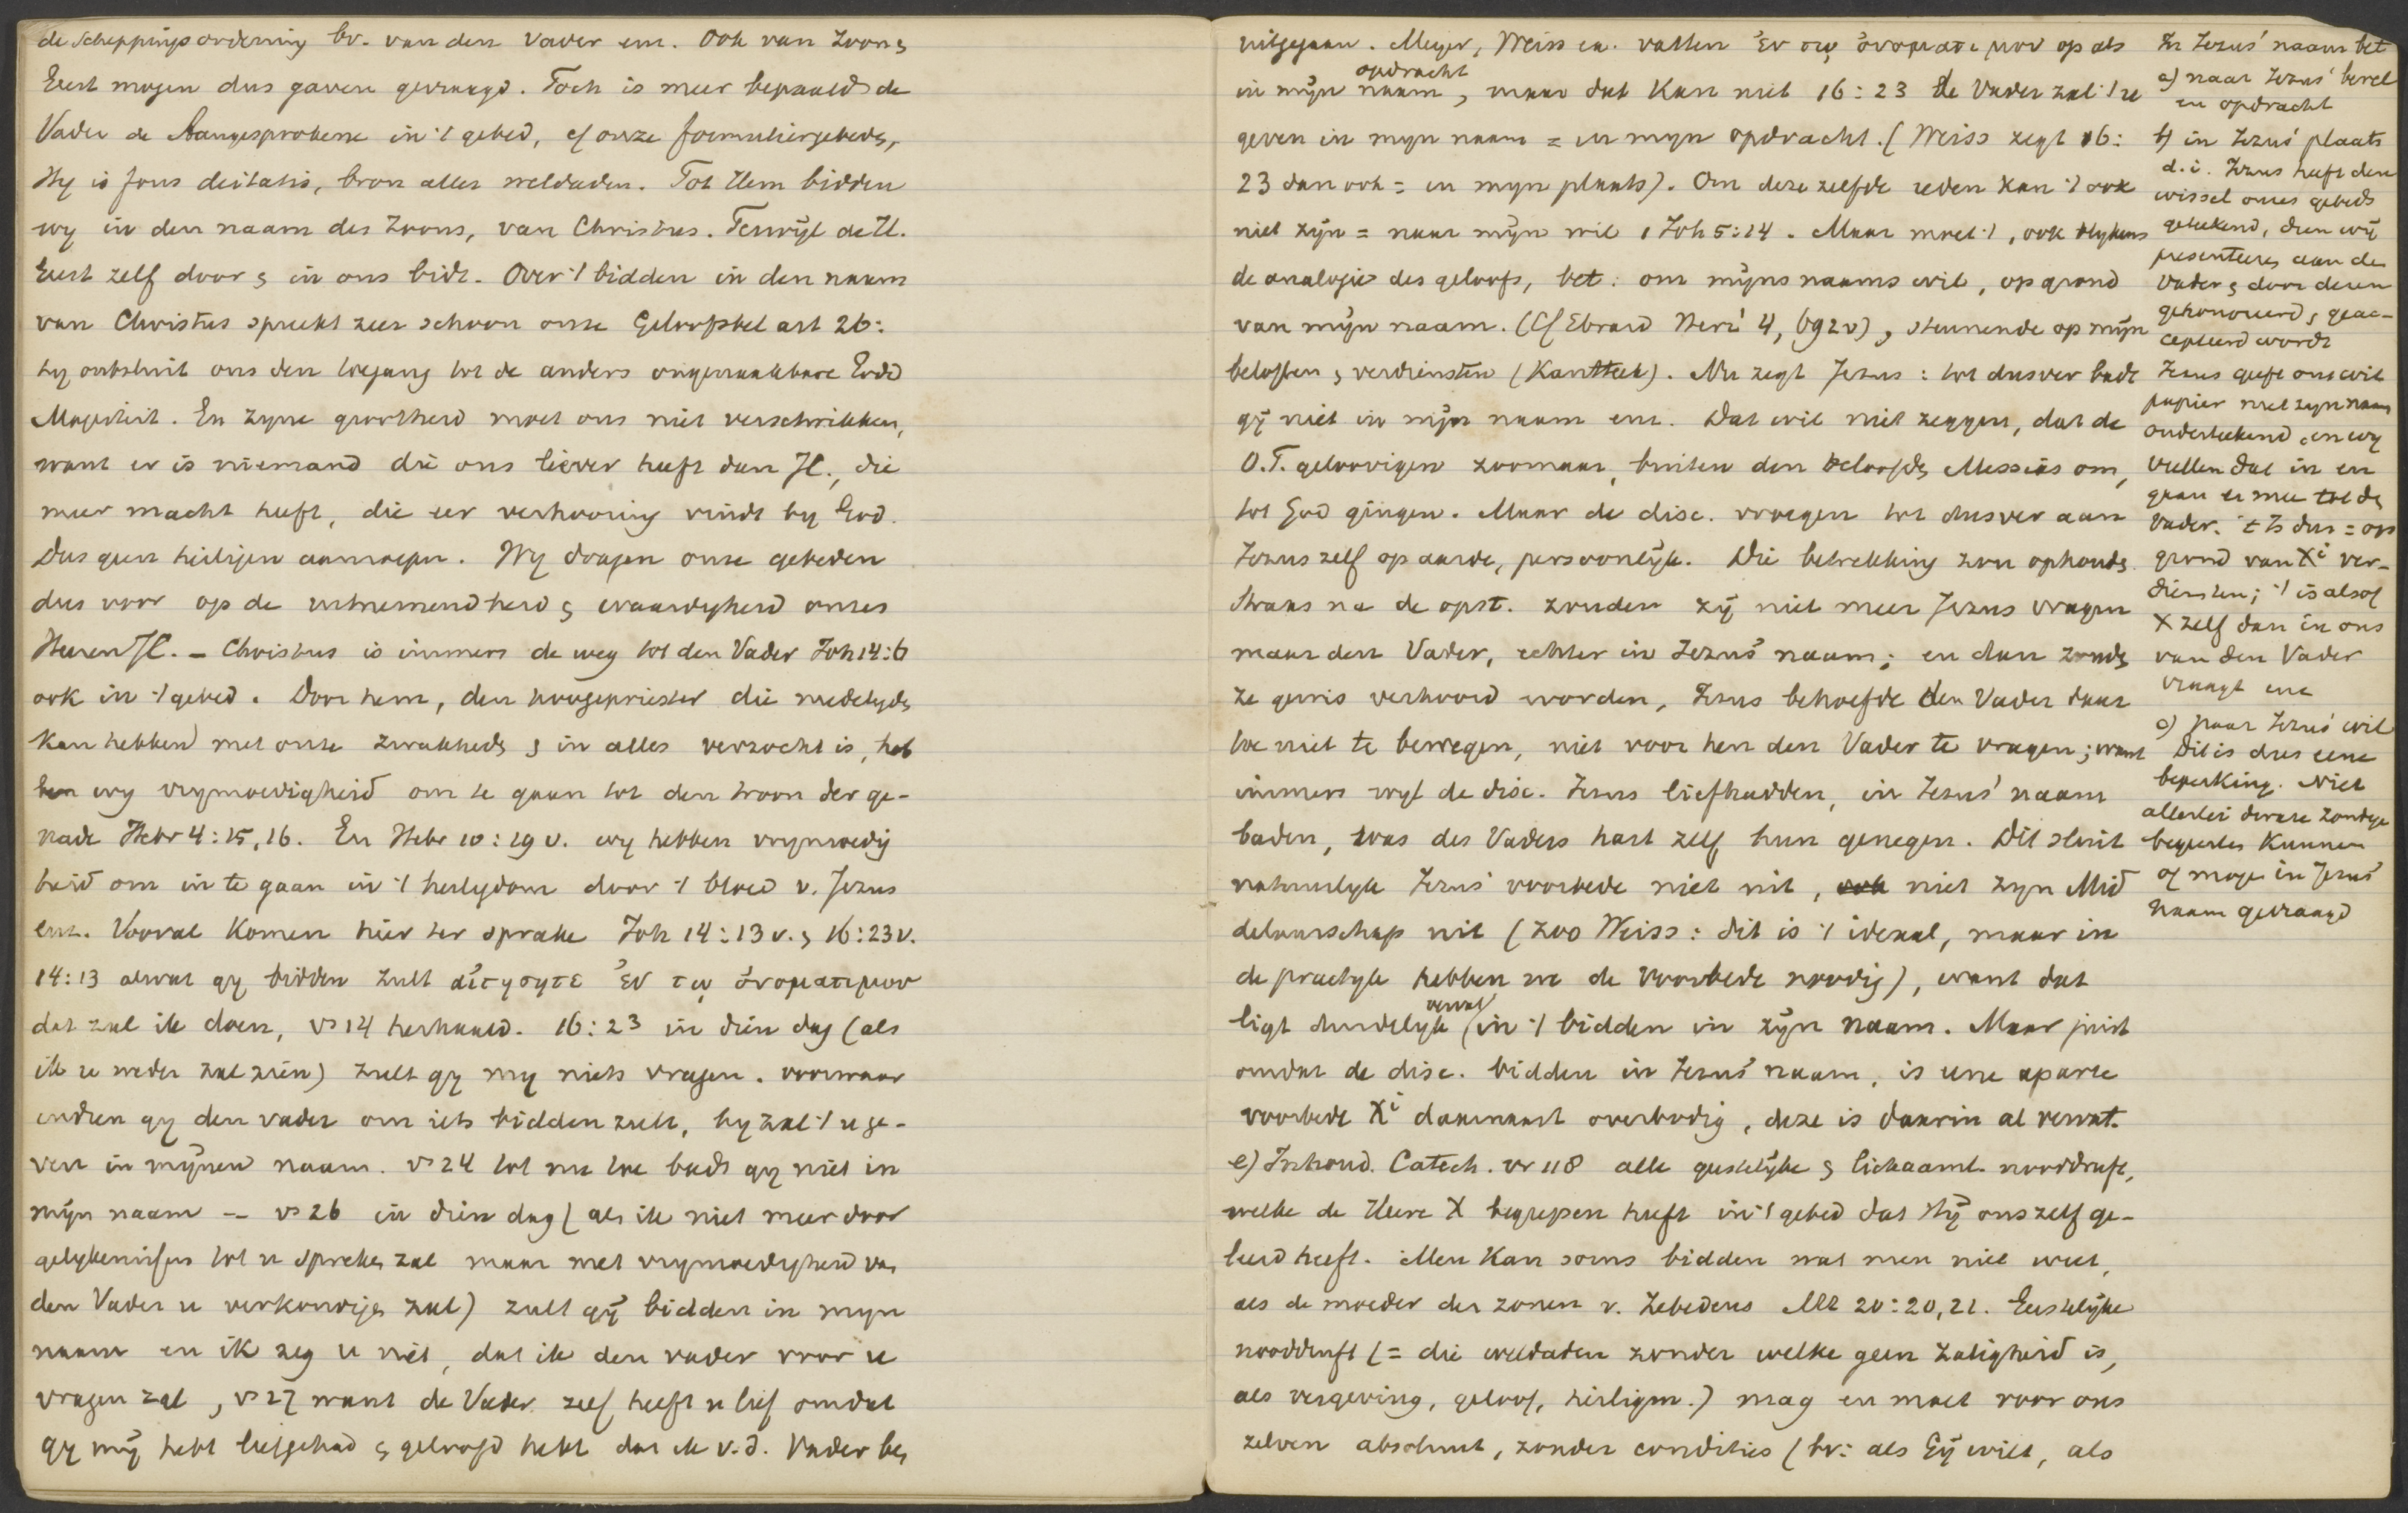 de Scheppingsordening bv. van den Vader enz. Ook van Zoon &
Geest mogen dus gaven gevraagd. Toch is meer bepaald de
Vader de Aangesprokene in 't gebed, cf onze formuliergebeds,
Hy is fons deitatis, bron aller weldaden. Tot Hem bidden
wy in den naam des Zoons, van Christus. Terwijl de H.
Geest zelf door & in ons bidt. Over 't bidden in den naam
van Christus spreekt zeer schoon onze Geloofsbel art 26:
hy ontsluit ons den toegang tot de anders ongenaakbare Godd
Majesteit. En zyne grootheid moet ons niet verschrikken,
want er is niemand die ons liever heeft dan JC., die
meer macht heeft, die eer verhooring vindt by God.
Dus geen heiligen aanroepen. Wy dragen onze gebeden
dus voor op de uitnemendheid & waardigheid onzes
Heeren JC. – Christus is immers de weg tot den Vader Joh 14:6
ook in 't gebed. Door hem, den hoogepriester die medelyds
kan hebben met onze zwakheds & in alles verzocht is, heb
ben wy vrymoedigheid om te gaan tot den troon der ge-
nade Hebr 4:15,16. En Hebr 10:19 v. wy hebben vrymoedig
heid om in te gaan in 't heiligdom door 't bloed v. Jezus
enz. Vooral komen hier ter sprake Joh 14:13 v. & 16:23 v.
14:13 alwat gy bidden zult αἰτησητε ἐν τῳ ὀνοματι μου
dat zal ik doen, vs 14 herhaald. 16:23 in dien dag (als
ik u weder zal zien) zult gy my niets vragen. voorwaar
indien gy den vader om iets bidden zult, hy zal 't u ge-
ven in mijnen naam. vs 24 tot nu toe badt gy niet in
mijn naam – vs 26 in dien dag (als ik niet meer door
gelykenissen tot u spreken zal maar met vrymoedigheid van
den Vader u verkondigen zal) zult gij bidden in myn
naam en ik zeg u niet, dat ik den vader voor u
vragen zal, vs 27 want de Vader zelf heeft u lief omdat
gy mij hebt liefgehad & geloofd hebt dat ik v.d. Vader ben
uitgegaan. Meyer, Weiss ea. vatten ἐν τῳ ὀνοματι μου op als
in mijn naam, opdracht maar dat kan niet 16:23 de Vader zal 't u
geven in myn naam = in myn opdracht. (Weiss zegt 16:
23 dan ook = in myn plaats). Om deze zelfde reden kan 't ook
niet zijn = naar mijn wil 1 Joh 5:14. Maar moet 't, ook blykens
de analogie des geloofs, bet: om mijns naams wil, op grond
van mijn naam. (Cf Ebrard Herz 4, 692 v), steunende op mijn
beloften & verdiensten (Kantteek). Nu zegt Jezus: tot dusver badt
gij niet in mijn naam enz. Dat wil niet zeggen, dat de
O.T. geloovigen zoomaar, buiten den beloofde Messias om,
tot God gingen. Maar de disc. vroegen tot dusver aan
Jezus zelf op aarde, persoonlijk. Die betrekking zou ophouds.
Straks na de opst. zouden zij niet meer Jezus vragen
maar den Vader, echter in Jezus' naam; en dan zouds
ze gewis verhoord worden, Jezus behoefde den Vader daar
toe niet te bewegen, niet voor hen den Vader te vragen; want
immers wyl de disc. Jezus liefhadden, in Jezus' naam
baden, was des Vaders hart zelf hun genegen. Dit sluit
natuurlyk Jezus' voorbede niet uit, ook niet zyn Mid
delaarschap uit (zoo Weiss: dit is 't ideaal, maar in
de practyk hebben we de voorbede noodig), want dat
ligt duidelyk vervat in 't bidden in zijn naam. Maar juist
omdat de disc. bidden in Jezus' naam, is eene aparte
voorbede Xⁱ daarnaast overbodig, deze is daarin al vervat.
e) Inhoud. Catech. vr 118 alle geestelijke & lichaaml. nooddruft,
welke de Heere X begrepen heeft in 't gebed dat Hij ons zelf ge-
leerd heeft. Men kan soms bidden wat men niet weet,
als de moeder der zonen v. Zebedeus Mt 20:20,21. Geestelijke
nooddruft (= die weldaden zonder welke geen zaligheid is,
als vergeving, geloof, heiligm.) mag en moet voor ons
zelven absoluut, zonder condities (bv: als Gij wilt, als
In Jezus' naam bet
a) naar Jezus' bevel
en opdracht
b) in Jezus' plaats
d.i. Jezus heeft den
wissel onzes gebeds
geteekend, dien wij
presenteeren aan de
Vader & door dezen
gehonoreerd & geac-
cepteerd wordt
Jezus geeft ons wit
papier met zyn naam
onderteekend, en wy
vullen dat in en
gaan er mee tot de
Vader. 't Is dus = op
grond van Xⁱ ver-
diensten; 't is alsof
X zelf dan in ons
van den Vader
vraagt enz
c) naar Jezus' wil
Dit is dus eene
beperking. Niet
allerlei dwaze zondige
begeertes kunnen
of mogen in Jezus'
naam gevraagd